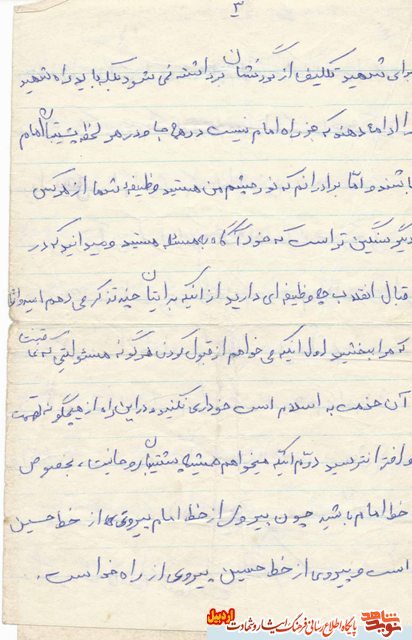 ۳
برای شهید تکلیف از گردنشان برداشته نمی شود بلکه باید راه شهید
را ادامه دهند که جز راه امام نیست در همه جا و در هر لحظه پشتیبان امام
باشند و اما برادرانم که نور چشم من هستید وظیفه شما از هر کس
دیگر سنگین تر است که خود آگاه به مسئله هستید و میدانید که در
قبال انقلاب چه وظیفه ای دارید از اینکه برایتان چند تذکر می دهم امیدوارم
که مرا ببخشید اول اینکه می خواهم از قبول کردن هرگونه مسئولیتی که عاقبت
آن خدمت به اسلام است خودداری نکنید و در این راه از هیچگونه تهمت
و افترا نترسید دوم اینکه میخواهم همیشه پشتیبان روحانیت، بخصوص
خط امام باشید چون پیروی از خط امام پیروی از خط حسین
است و پیروی از خط حسین پیروی از راه خدا است.
نوید شاهد
پایگاه اطلاع رسانی فرهنگ ایثار و شهادت
اردبیل